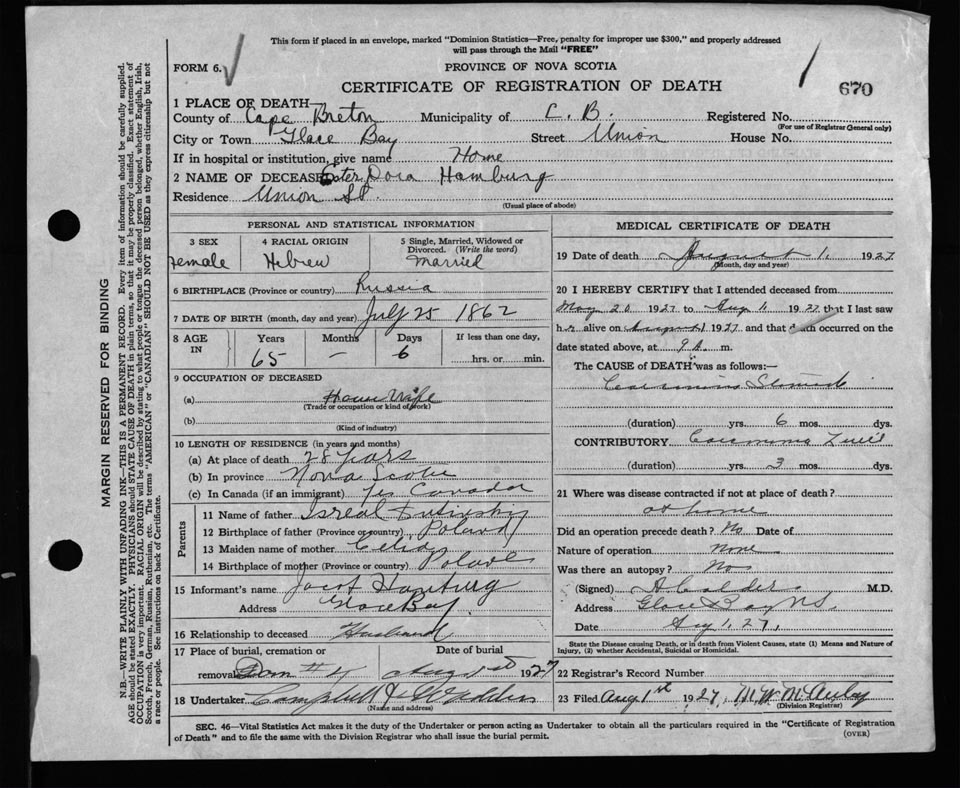 This form if placed in an envelope, marked "Dominion Statistics—Free, penalty for improper use $300," and properly addressed
will pass through the Mail "FREE"
FORM 6.
PROVINCE OF NOVA SCOTIA
CERTIFICATE OF REGISTRATION OF DEATH
670
1 PLACE OF DEATH—
County of Cape Breton Municipality of C. B. Registered No.
(For use of Registrar General only)
City or Town Glace Bay Street Union House No.
If in hospital or institution, give name Home
2 NAME OF DECEASED Ester Dora Hamburg
Residence Union St.
(Usual place of abode)
PERSONAL AND STATISTICAL INFORMATION
3 SEX 4 RACIAL ORIGIN 5 Single, Married, Widowed or
Divorced. (Write the word)
Female Hebrew Married
6 BIRTHPLACE (Province or country) Russia
7 DATE OF BIRTH (month, day and year) July 25 1862
8 AGE IN Years Months Days If less than one day,
65 — 6 hrs. or min.
9 OCCUPATION OF DECEASED
(a) House Wife
(Trade or occupation or kind of work)
(b)
(Kind of industry)
10 LENGTH OF RESIDENCE (in years and months)
(a) At place of death 28 years
(b) In province Nova Scotia
(c) In Canada (if an immigrant) Yes Canada
Parents
11 Name of father Isreal
12 Birthplace of father (Province or country) Poland
13 Maiden name of mother Celia
14 Birthplace of mother (Province or country) Poland
15 Informant's name Jacob Hamburg
Address Glace Bay
16 Relationship to deceased Husband
17 Place of burial, cremation or Date of burial
removal Dom # 4 Aug 1st 1927
18 Undertaker Campbell &
(Name and address)
MEDICAL CERTIFICATE OF DEATH
19 Date of death August 1, 1927
(Month, day and year)
20 I HEREBY CERTIFY that I attended deceased from
May 20 1927 to Aug 1 1927 that I last saw
her alive on August 1 1927 and that death occurred on the
date stated above, at 9 A. m.
The CAUSE of DEATH was as follows:—
Carcinoma Stomach
(duration) yrs. 6 mos. dys.
CONTRIBUTORY Carcinoma Liver
(duration) yrs. 3 mos. dys.
21 Where was disease contracted if not at place of death?
at home
Did an operation precede death? No Date of
Nature of operation None
Was there an autopsy? No
(Signed) A Calder M.D.
Address Glace Bay N.S.
Date Aug 1, 27.
State the Disease causing Death, or in death from Violent Causes, state (1) Means and Nature of
Injury, (2) whether Accidental, Suicidal or Homicidal.
22 Registrar's Record Number
23 Filed Aug 1st 1927.
(Division Registrar)
SEC. 46—Vital Statistics Act makes it the duty of the Undertaker or person acting as Undertaker to obtain all the particulars required in the "Certificate of Registration
of Death" and to file the same with the Division Registrar who shall issue the burial permit.
(OVER)
MARGIN RESERVED FOR BINDING
N.B.—WRITE PLAINLY WITH UNFADING INK—THIS IS A PERMANENT RECORD. Every item of information should be carefully supplied.
AGE should be stated EXACTLY. PHYSICIANS should STATE CAUSE OF DEATH in plain terms, so that it may be properly classified. Exact statement of
OCCUPATION is very important. RACIAL ORIGIN will be described by stating to what people or tongue the deceased person belonged, whether English, Irish,
Scotch, French, German, Russian, Ruthenian, etc. The terms "AMERICAN" or "CANADIAN" SHOULD NOT BE USED as they express citizenship but not
a race or people. See instructions on back of Certificate.